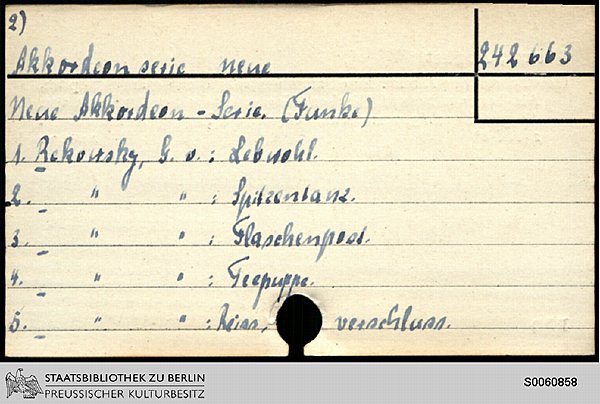 2)
Akkordeon serie neue 242 663
Neue Akkordeon - Serie. (Funke)
1. Rekowsky, G. v. : Lebwohl.
2. " " : Spitzentanz.
3. " " : Flaschenpost.
4. " " : Teepuppe.
5. " " : Reiss, verschluss.
STAATSBIBLIOTHEK ZU BERLIN
PREUSSISCHER KULTURBESITZ
S0060858